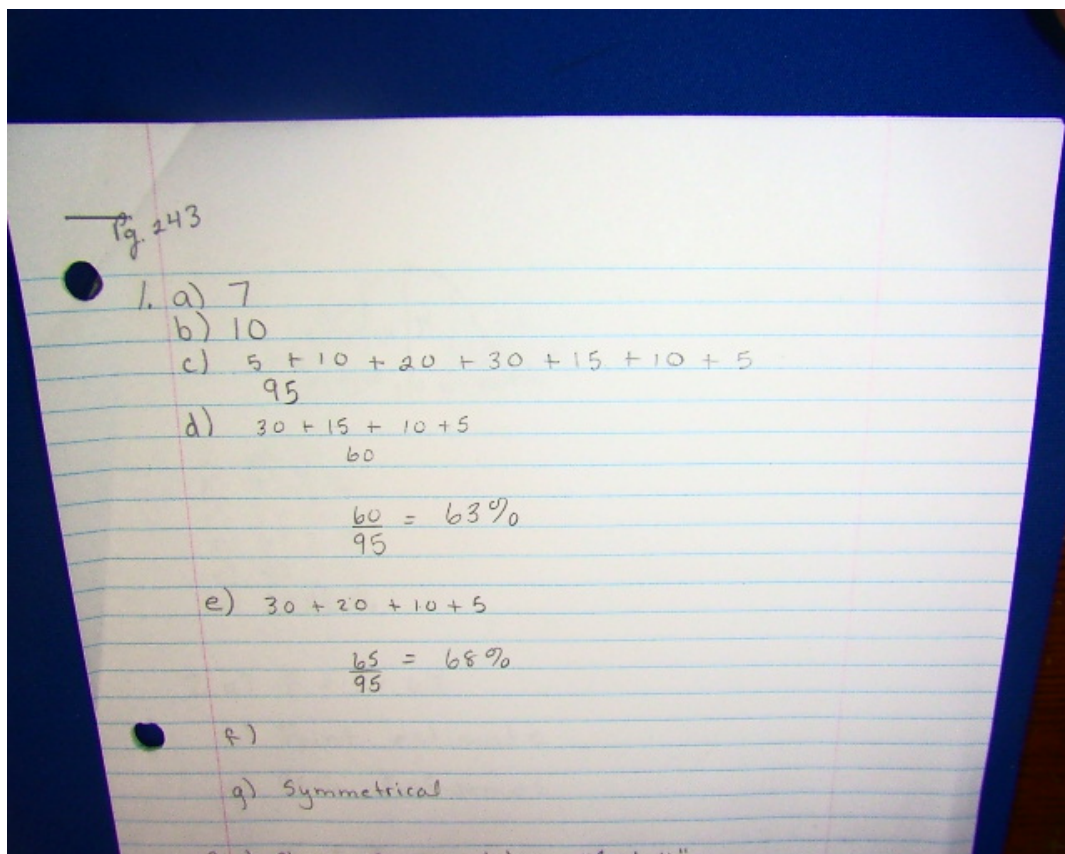 Pg. 243
1. a) 7
b) 10
c) 5 + 10 + 20 + 30 + 15 + 10 + 5
95
d) 30 + 15 + 10 + 5
60
60/95 = 63%
e) 30 + 20 + 10 + 5
65/95 = 68%
f)
g) Symmetrical